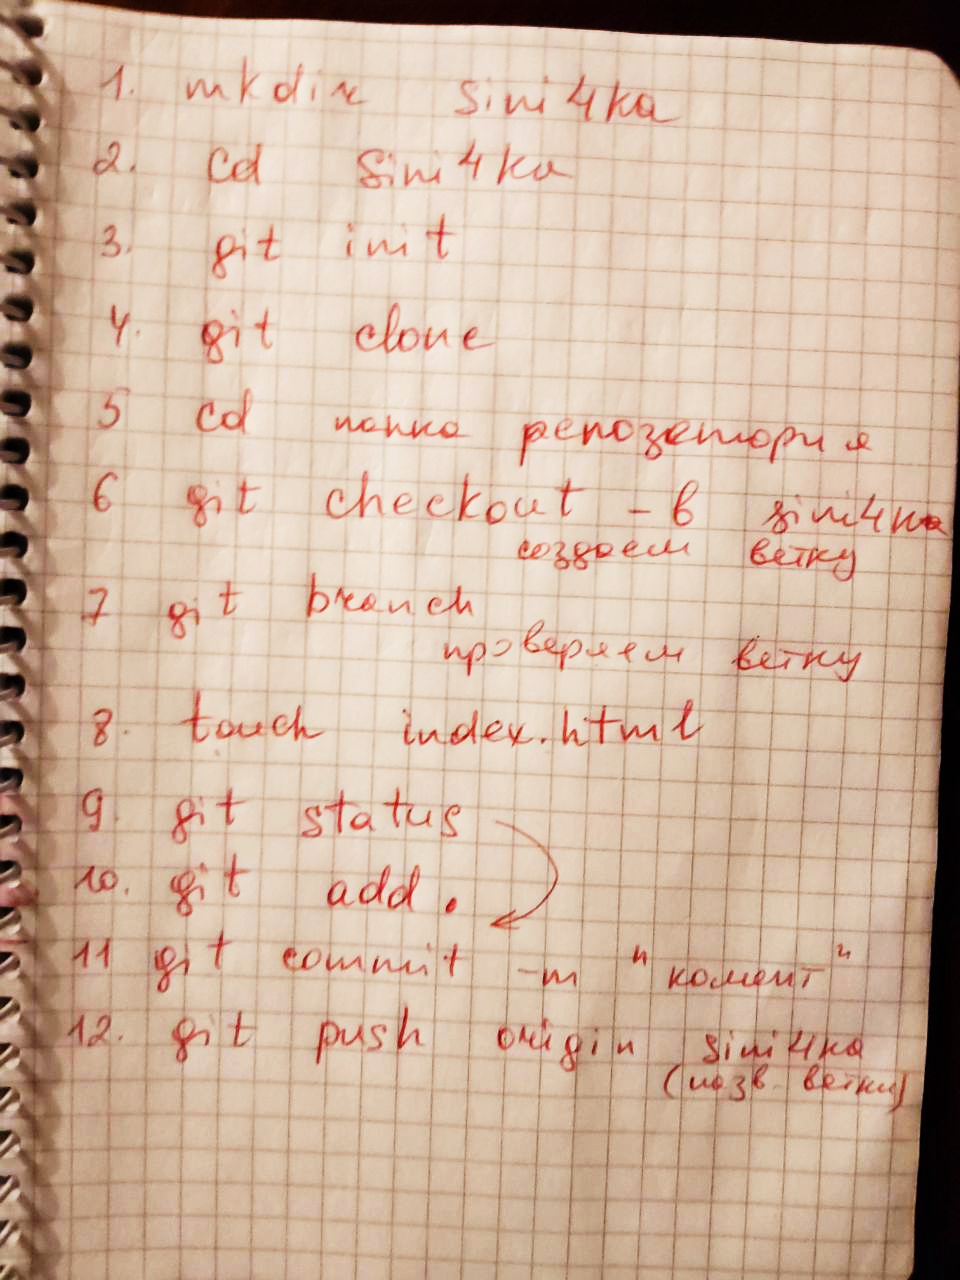 1. mkdir sini4ka
2. cd sini4ka
3. git init
4. git clone
5 cd папка репозетория
6 git checkout -b sini4ka
создаем ветку
7 git branch
проверяем ветку
8. touch index.html
9. git status
10. git add .
11 git commit -m "комент"
12. git push origin sini4ka
(назв. ветки)